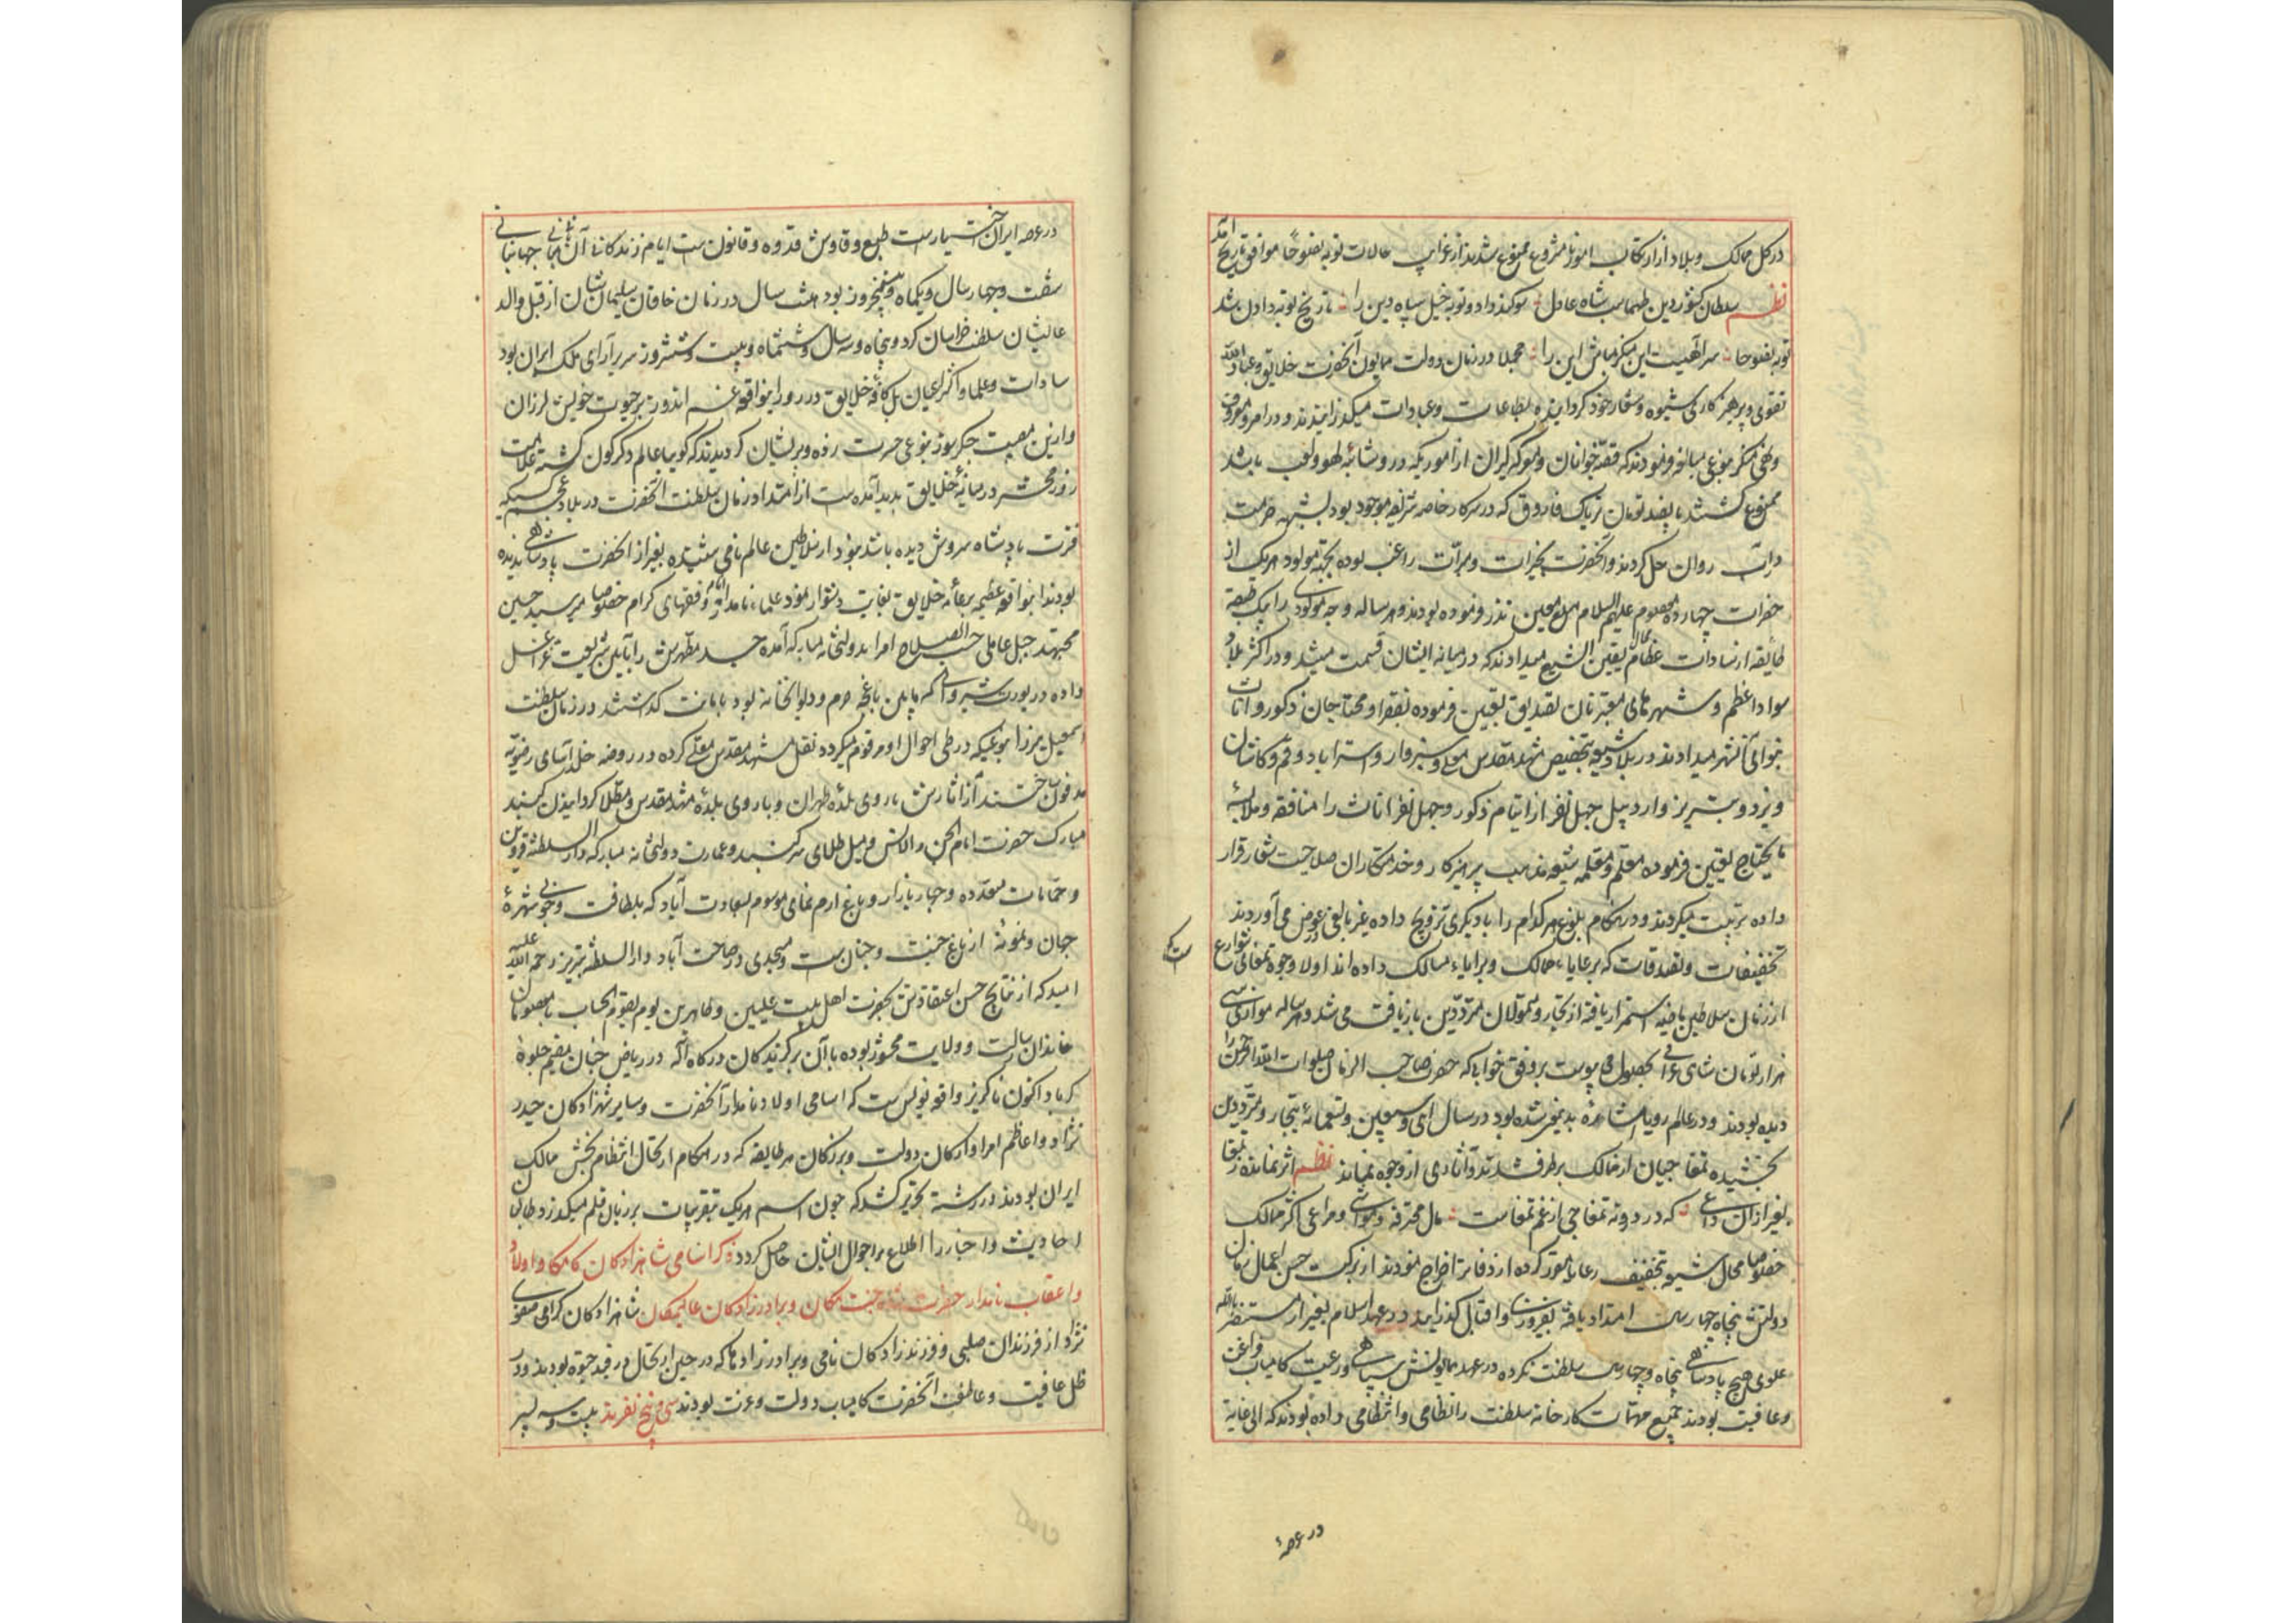 در کل ممالک و بلاد از ارتکاب امور نامشروع ممنوع شدند از غرایب حالات توبة نصوحا موافق تاریخ آمد
نظم سلطان کشور دین طهماسب شاه عادل سوکند داد و توبه خیل سپاه دین را تاریخ توبه دادن شد
توبة نصوحا سر الهیست این منکر مباش این را مجملا در زمان دولت همایون آنحضرت خلایق و عباد الله
تقوی و پرهیزکاری شیوه و شعار خود کردانیده بطاعات و عبادات میکذرانیدند و در امر معروف
و نهی منکر بنوعی مبالغه فرمودند که قصه خوانان و معرکه کیران از اموریکه در و شائبه لهو و لعب باشد
ممنوع کشتند پانصد تومان تریاک فاروق که در سرکار خاصه شریفه موجود بود بشبهه حرمت
در آب روان حل کردند و آنحضرت بخیرات و مبرات راغب بوده بجهة مولود هر یک از
حضرات چهارده معصوم علیهم السلام مبلغ معین نذر فرموده بودند و هر ساله وجه مولودی را بیک طبقه
طایفه از سادات عظام یقین التشیع میدادند که در میانه ایشان قسمت میشد و در اکثر بلاد
سواد اعظم و شهرهای معتبر نان تصدیق تعیین فرموده بفقرا و محتاجان ذکور و اناث
بنوای آنشهر میدادند در بلاد شیعه بتخصیص مشهد مقدس معلی و سبزوار و استراباد و قم و کاشان
و یزد و تبریز و اردبیل چهل نفر از ایتام ذکور و چهل نفر اناث را منافقه و ملابسه
مایحتاج تعیین فرموده معلم و معلمه شیعه مذهب پرهیزکار و خدمتکاران صلاحیت شعار قرار
داده تربیت میکردند و در هنکام بلوغ هر کدام را با دیکری تزویج داده غیر بالغی در عوض می آوردند
تخفیفات و تصدقات که بر عایاء ممالک و برایاء مسالک داده اند اولا وجوه تمغای شوارع
از زمان سلاطین ماضیه استمرار یافته از تجار و متمولان و مترددین بازیافت می شد و هر ساله موازی سی
هزار تومان شاهی عراقی بحصول می پیوست بر وفق خوابی که حضرت صاحب الزمان صلوات الله الرحمن را
دیده بودند و در عالم رویا مشاهده بدیشان شده بود در سال احدی و سبعین و تسعمائة بتجار و مترددین
بخشیده تمغاجیان از ممالک بر طرف شدند و آثاری از وجوه نماند نظم اثر نمانده ز تمغا
بغیر از آن داغی که در درونه تمغاچی از غم تمغاست مال محترفه و مواشی و مراعی اکثر ممالک
خصوصا محال شیعه بتخفیف رعایا مقرر کرده از دفاتر اخراج نمودند از برکت حسن اعمال زمان
دولتش پنجاه چهار سال امتداد یافته بفیروزی و اقبال کذرانید در عهد اسلام بغیر از مستنصر بالله
علوی هیچ پادشاهی پنجاه و چهار سال سلطنت نکرده در عهد همایونش سپاهی و رعیت کامیاب فراغت
و عافیت بودند جمیع مهمات کارخانه سلطنت را نظامی و انتظامی داده بودند که الی غایة
در عرصه
در عرصه ایران جنت نشان دستور العمل و قانونست ایام زندکانی آن ثانی جهانبانی
شصت و چهار سال و یکماه و پنجروز بود هشت سال در زمان خاقان سلیمان نشان از قبل والد
عالیشان سلطنت خراسان کرد و پنجاه و سه سال و ششماه و بیست و شش روز سریر آرای ملک ایران بود
سادات و علما و اکثر اعیان بل کافه خلایق در روز این واقعه غم اندوز بر حیوت خویش لرزان
و ازین مصیبت جکرسوز بنوعی حسرت زده و پریشان کردیدند که کوییا عالم دکرکون کشته علامت
روز محشر در میانه خلایق پدید آمده ست از امتداد زمان سلطنت آنحضرت در بلاد عجم کسیکه
فترت پادشاه سروش دیده باشد نبود از سلاطین عالم نامی نشنیده بغیر از آنحضرت پادشاهی ندیده
بودند این واقعه عظیمه بر عامه خلایق بغایت دشوار نمود علماء نامدار و فقهای کرام خصوصا میر سید حسین
مجتهد جبل عاملی حسب الصلاح امرا بدولتخانه مبارکه آمده جسد مطهرش را بآیین شریعت غرا غسل
داده در یورت شیروانی که مابین باغچه حرم و دیوانخانه بود بامانت کذاشتند در زمان سلطنت
اسمعیل میرزا بنوعیکه در طی احوال او مرقوم میکردد نقل مشهد مقدس معلی کرده در روضه خلد آسای رضویه
مدفون ساختند از آثارش باروی بلده طهران و باروی بلده مشهد مقدس و مطلا کردانیدن کنبد
مبارک حضرت امام الجن والانس و میل طلای سر کنبد و عمارت دولتخانه مبارکه دار السلطنه قزوین
و حمامات متعدده و چهار بازار و باغ ارم نمای موسوم بسعادت آباد که بلطافت و خوبی شهرة
جهان و نمونه از باغ جنت و جنانست و مسجدی در صاحب آباد دار السلطنه تبریز رحمة الله علیه
امید که از نتایج حسن اعتقادتش بحضرت اهل بیت طیبین و طاهرین یوم یقوم الحساب با معصومان
خاندان رسالت و ولایت محشور بوده با آن برکزیدکان درکاه اله در ریاض جنان مقیم جلوة
کرباد اکنون ناکزیر واقعه نویس ست که اسامی اولاد نامدار آنحضرت و سایر شهزادکان حیدر
نژاد و اعاظم امرا و ارکان دولت و بزرکان هر طایفه که در هنکام ارتحال انتظام بخش ممالک
ایران بودند در رشته تحریر کشد که چون اسم هر یک بتقریبات بر زبان قلم میکذرد طالبان
احادیث و اخبار را اطلاع بر احوال ایشان حاصل کردد ذکر اسامی شاهزادکان کامکار و اولاد
و اعقاب نامدار حضرت شاه جنت مکان و برادرزادکان عالیمکان شاهزادکان کرامی صفوی
نژاد از فرزندان صلبی و فرزندزادکان نامی و برادرزادها که در حین ارتحال در قید حیوة بودند و در
ظل عافیت و عاطفت آنحضرت کامیاب دولت و عزت بودند سی و پنج نفرند بیست و سه پسر